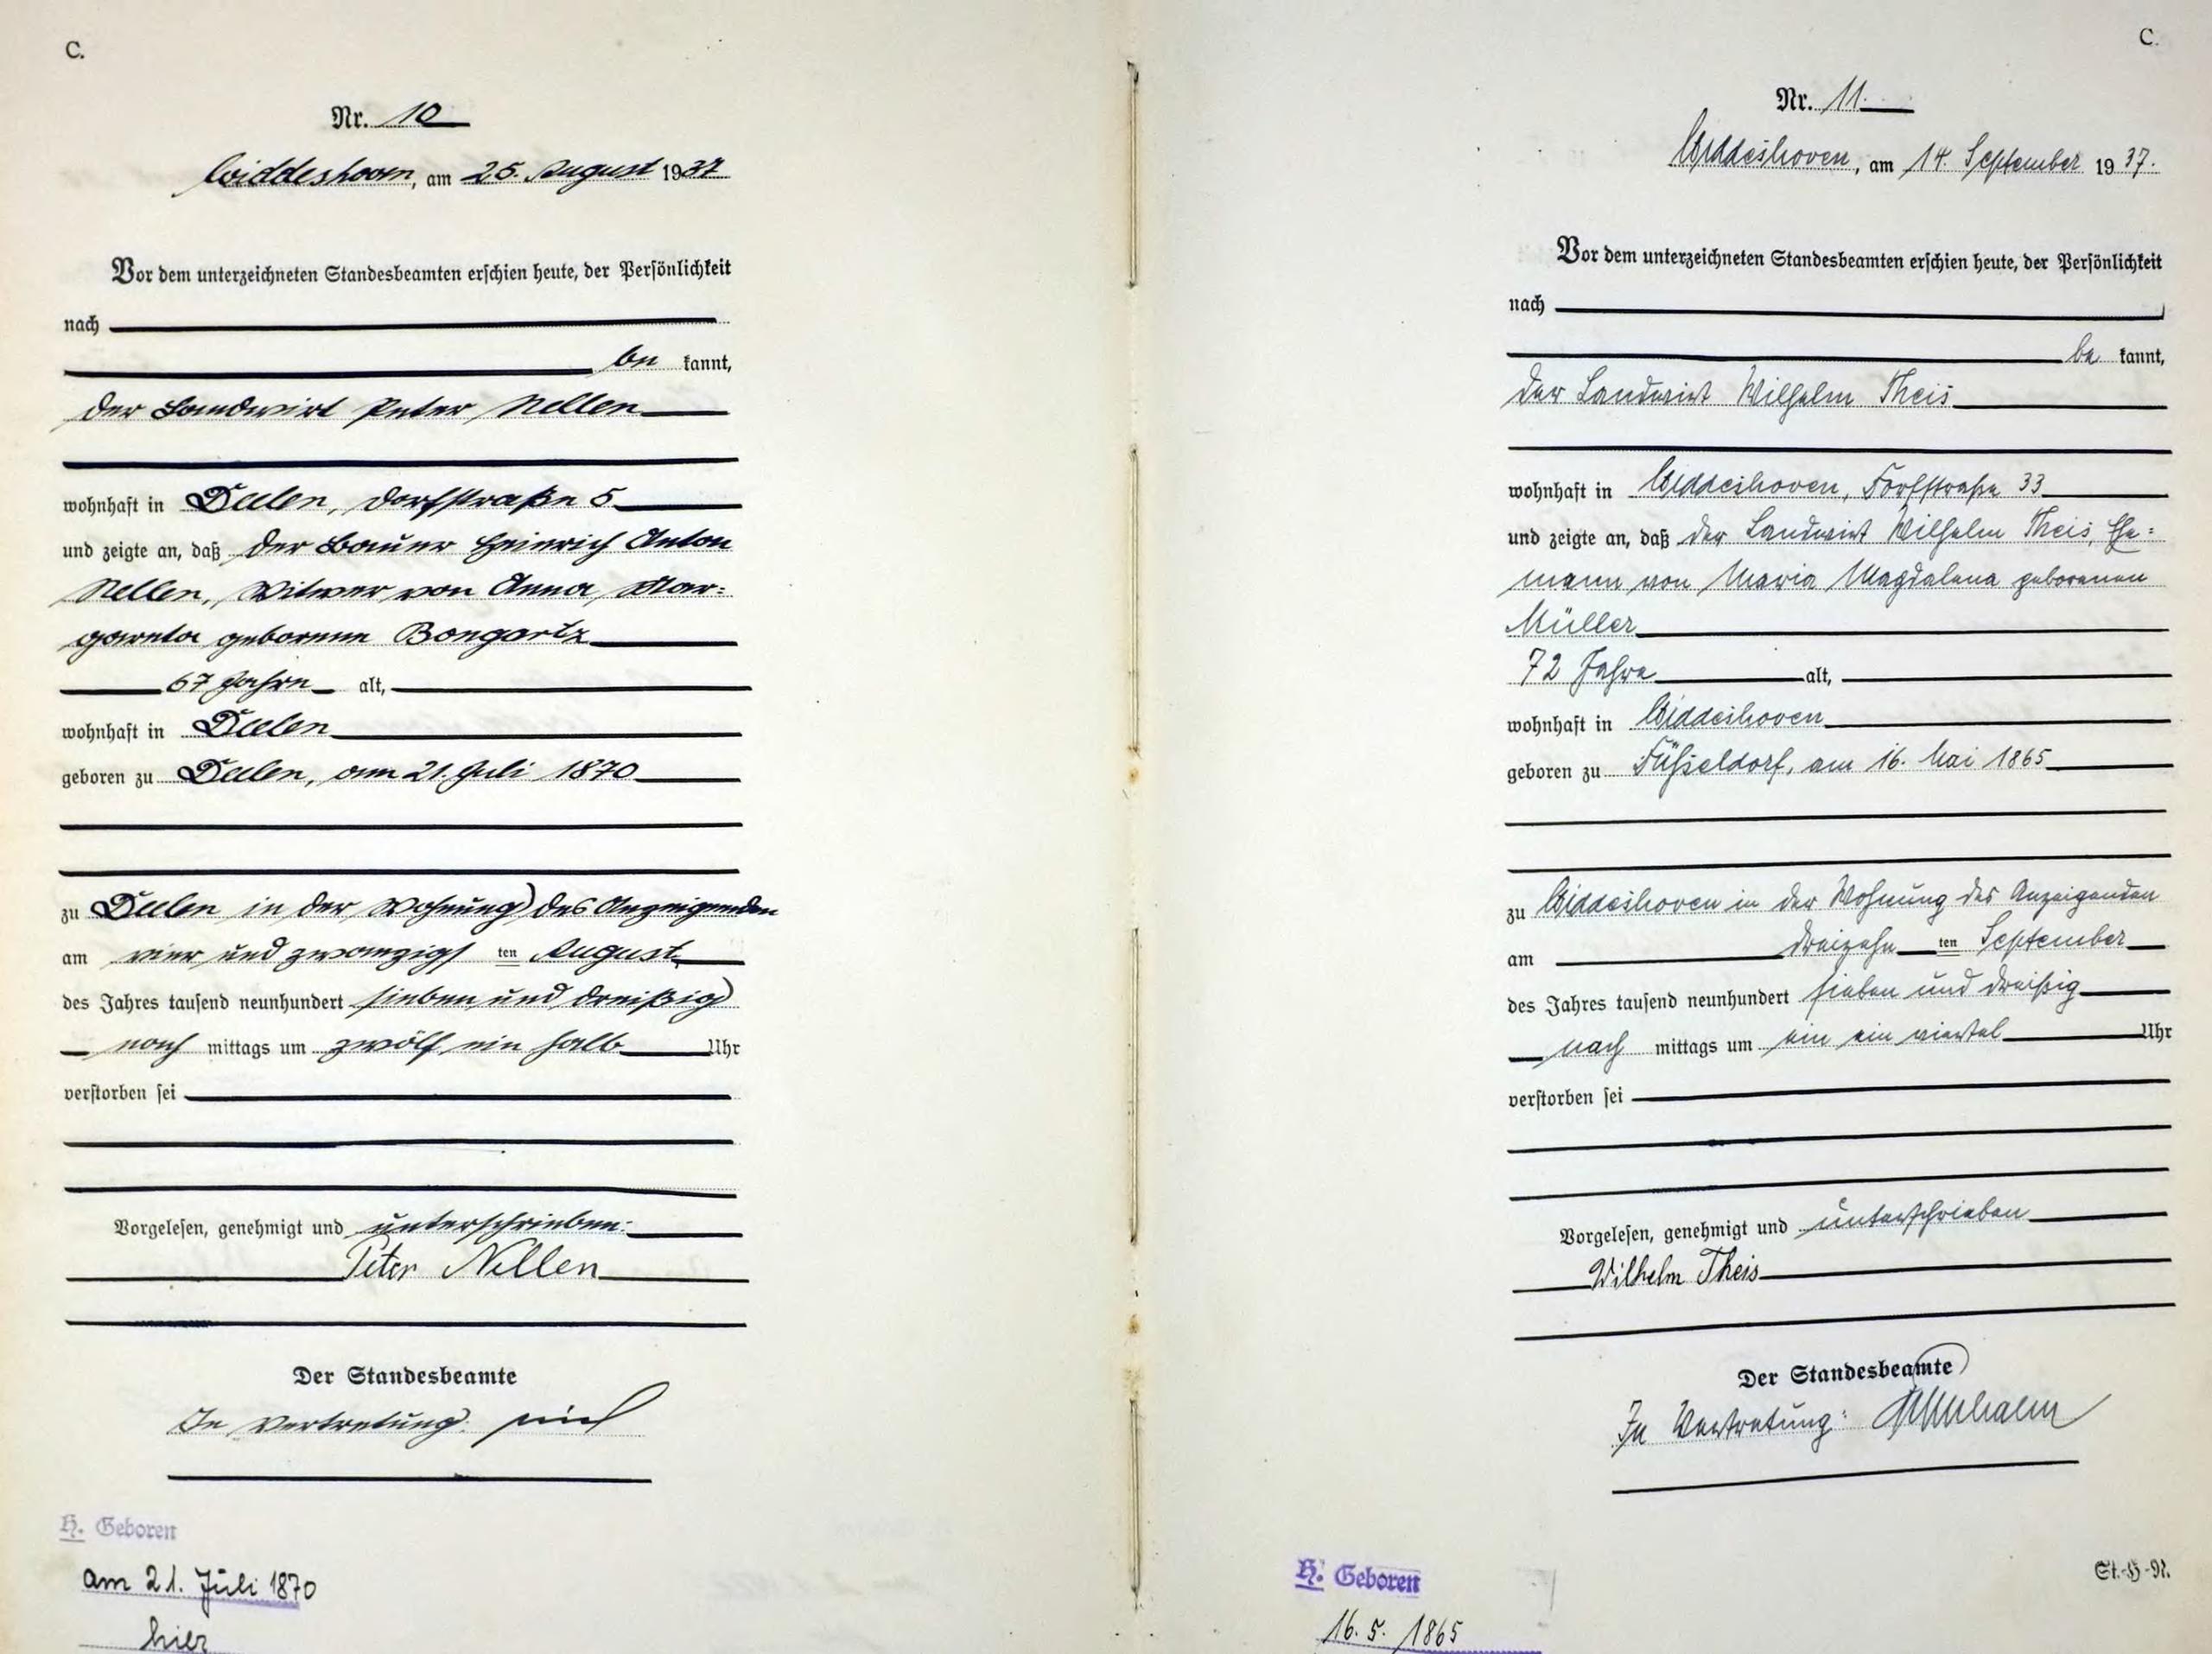 C.
Nr. 10
Widdeshoven, am 25. August 1937
Vor dem unterzeichneten Standesbeamten erschien heute, der Persönlichkeit
nach
be kannt,
der Landwirt Peter Nellen
wohnhaft in Deelen, Dorfstraße 5
und zeigte an, daß der Bauer Heinrich Anton
Nellen, Witwer von Anna Mar=
gareta geborene Bongartz
67 Jahre alt,
wohnhaft in Deelen
geboren zu Deelen, am 21. Juli 1870
zu Deelen in der Wohnung des Anzeigenden
am vier und zwanzigs ten August
des Jahres tausend neunhundert sieben und dreißig
nach mittags um zwölf ein halb Uhr
verstorben sei
Vorgelesen, genehmigt und unterschrieben:
Peter Nellen
Der Standesbeamte
In Vertretung:
H. Geboren
am 21. Juli 1870
hier
C.
Nr. 11.
Widdeshoven, am 14. September 1937.
Vor dem unterzeichneten Standesbeamten erschien heute, der Persönlichkeit
nach
be kannt,
der Landwirt Wilhelm Theis
wohnhaft in Widdeshoven, Dorfstraße 33
und zeigte an, daß der Landwirt Wilhelm Theis, Ehe=
mann von Maria Magdalena geborenen
Müller
72 Jahre alt,
wohnhaft in Widdeshoven
geboren zu am 16. Mai 1865
zu Widdeshoven in der Wohnung des Anzeigenden
am dreizehn ten September
des Jahres tausend neunhundert sieben und dreißig
nach mittags um ein ein viertel Uhr
verstorben sei
Vorgelesen, genehmigt und unterschrieben
Wilhelm Theis
Der Standesbeamte
In Vertretung:
H. Geboren
16. 5. 1865
St.-H-N.